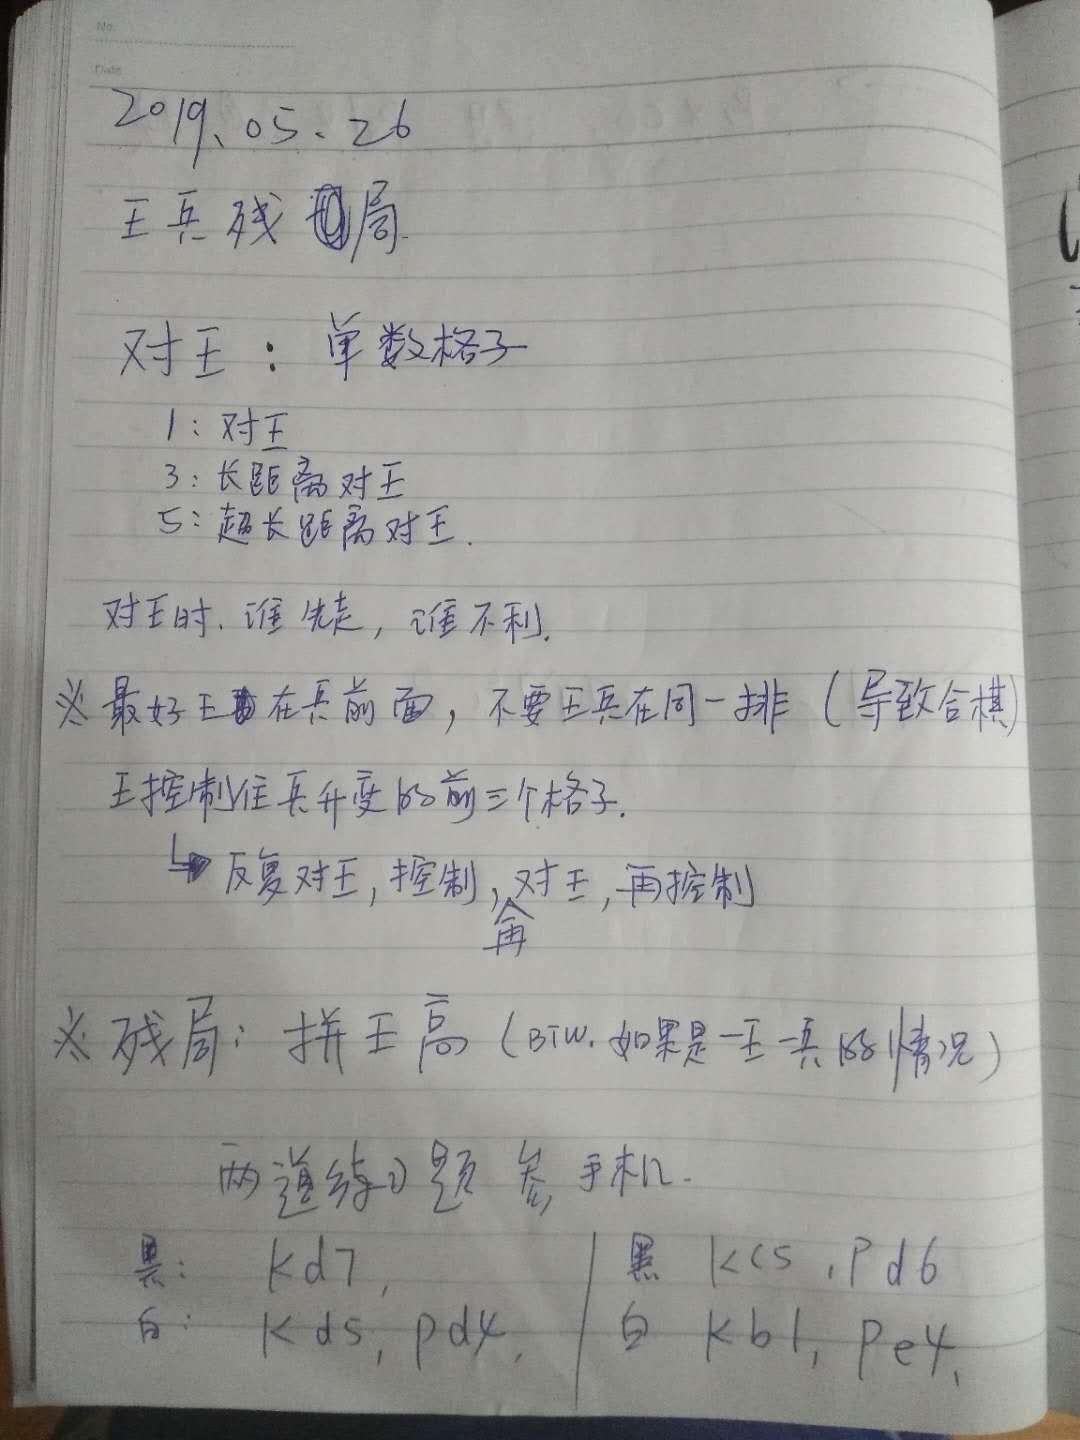 No.
Date
2019.05.26
王兵残局.
对王：单数格子
1：对王
3：长距离对王
5：超长距离对王.
对王时.谁先走，谁不利.
※最好王在兵前面，不要王兵在同一排（导致合棋）
王控制住兵升变的前三个格子.
↳反复对王，控制，再对王，再控制
※残局：拼王高（BTW.如果是一王一兵的情况）
两道练习题参手机.
黑：Kd7, 黑 Kc5,Pd6
白：Kd5,Pd4, 白 Kb1,Pe4,